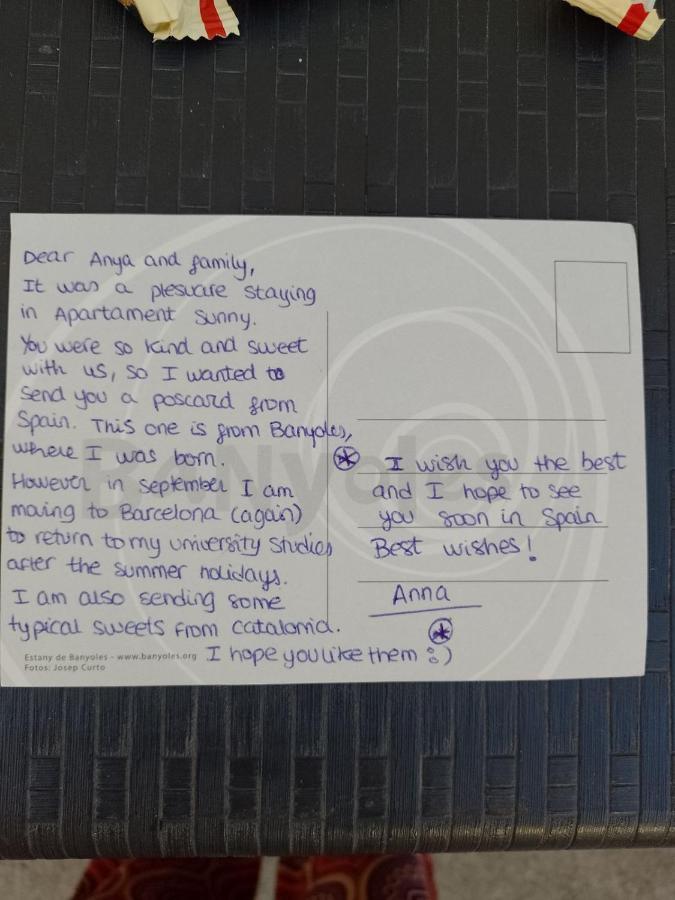 Dear Anya and family,
It was a plesuare staying
in Apartament Sunny.
You were so kind and sweet
with us, so I wanted to
send you a poscard from
Spain. This one is from Banyoles,
where I was born.
However in september I am
moving to Barcelona (again)
to return to my university studies
after the summer holidays.
I am also sending some
typical sweets from Catalonia.
I hope you like them :)
Estany de Banyoles - www.banyoles.org
Fotos: Josep Curto
Banyoles
I wish you the best
and I hope to see
you soon in Spain
Best wishes!
Anna